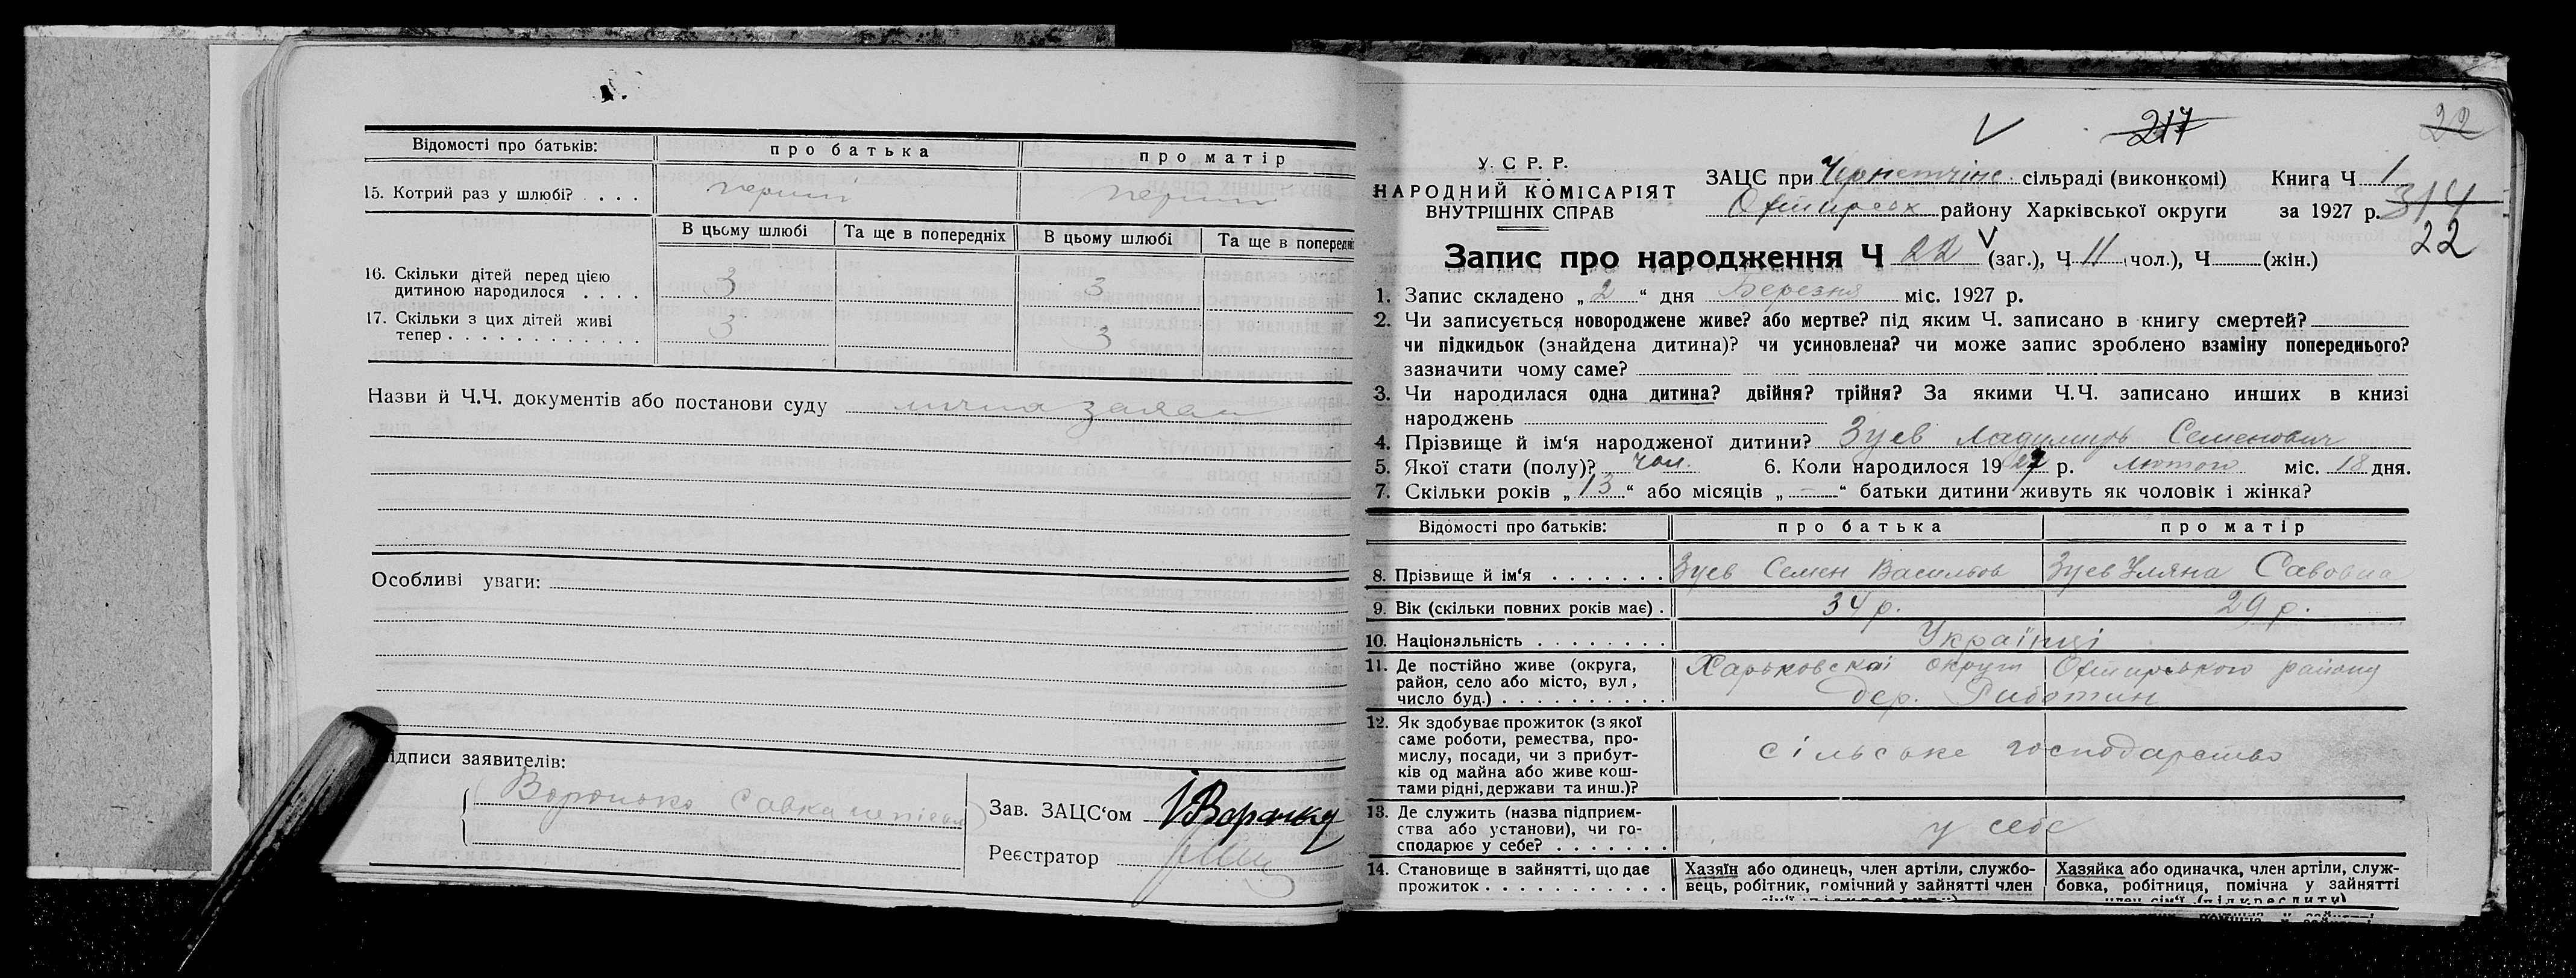 Відомості про батьків: про батька про матір
15. Котрий раз у шлюбі? . . . . перший перший
В цьому шлюбі Та ще в попередніх В цьому шлюбі Та ще в попередні
16. Скільки дітей перед цією
дитиною народилося . . . . 3 3
17. Скільки з цих дітей живі
тепер . . . . . . . . . . . . . 3 3
Назви й Ч.Ч. документів або постанови суду лична заява
Особливі уваги:
ідписи заявителів:
Воронько Савка
Зав. ЗАЦС‘ом
Реєстратор
217
22
У. С. Р. Р.
НАРОДНИЙ КОМІСАРІЯТ
ВНУТРІШНІХ СПРАВ
ЗАЦС при сільраді (виконкомі) Книга Ч 1
району Харківської округи за 1927 р. 314
22
Запис про народження Ч 22 (заг.), Ч 11 чол.), Ч (жін.)
1. Запис складено „ 2 “ дня Березня міс. 1927 р.
2. Чи записується новороджене живе? або мертве? під яким Ч. записано в книгу смертей?
чи підкидьок (знайдена дитина)? чи усиновлена? чи може запис зроблено взаміну попереднього?
зазначити чому саме?
3. Чи народилася одна дитина? двійня? трійня? За якими Ч.Ч. записано инших в книзі
народжень
4. Прізвище й ім‘я народженої дитини? Зуев Семенович
5. Якої стати (полу)? чол. 6. Коли народилося 1927 р. лютого міс. 18 дня.
7. Скільки років „ 13 “ або місяців „ — “ батьки дитини живуть як чоловік і жінка?
Відомості про батьків: про батька про матір
8. Прізвище й ім‘я . . . . . . . Зуев Семен Васильов Зуев Уляна Савовна
9. Вік (скільки повних років має) . 34 р. 29 р.
10. Національність . . . . . . . . Українці
11. Де постійно живе (округа,
район, село або місто, вул,
число буд.) . . . . . . . . . .
Харьковскої округи Охтирського району
дер. Риботин
12. Як здобуває прожиток (з якої
саме роботи, ремества, про-
мислу, посади, чи з прибут-
ків од майна або живе кош-
тами рідні, держави та инш.)?
сільське господарство
13. Де служить (назва підприєм-
ства або установи), чи го-
сподарює у себе? . . . . . . .
у себе
14. Становище в зайнятті, що дає
прожиток . . . . . . . . . . . .
Хазяїн або одинець, член артіли, службо-
вець, робітник, помічний у зайнятті член
Хазяйка або одиначка, член артіли, служ-
бовка, робітниця, помічна у зайнятті
член сім‘ї (підкреслити)